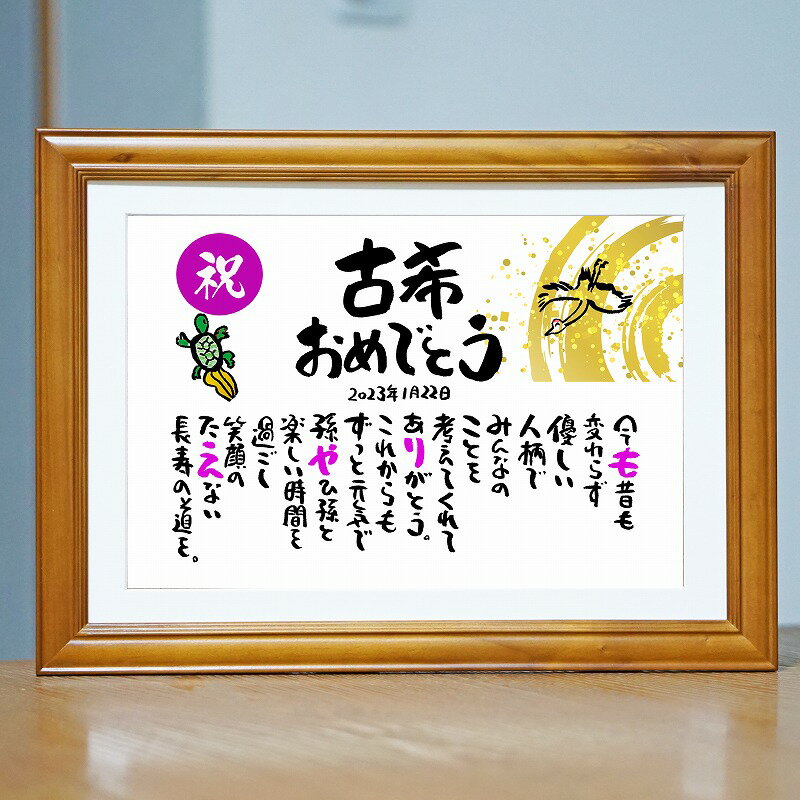 祝
古希
おめでとう
2023年1月22日
今も昔も
変わらず
優しい
人柄で
みんなの
ことを
考えてくれて
ありがとう。
これからも
ずっと元気で
孫やひ孫と
楽しい時間を
過ごし
笑顔の
たえない
長寿の道を。